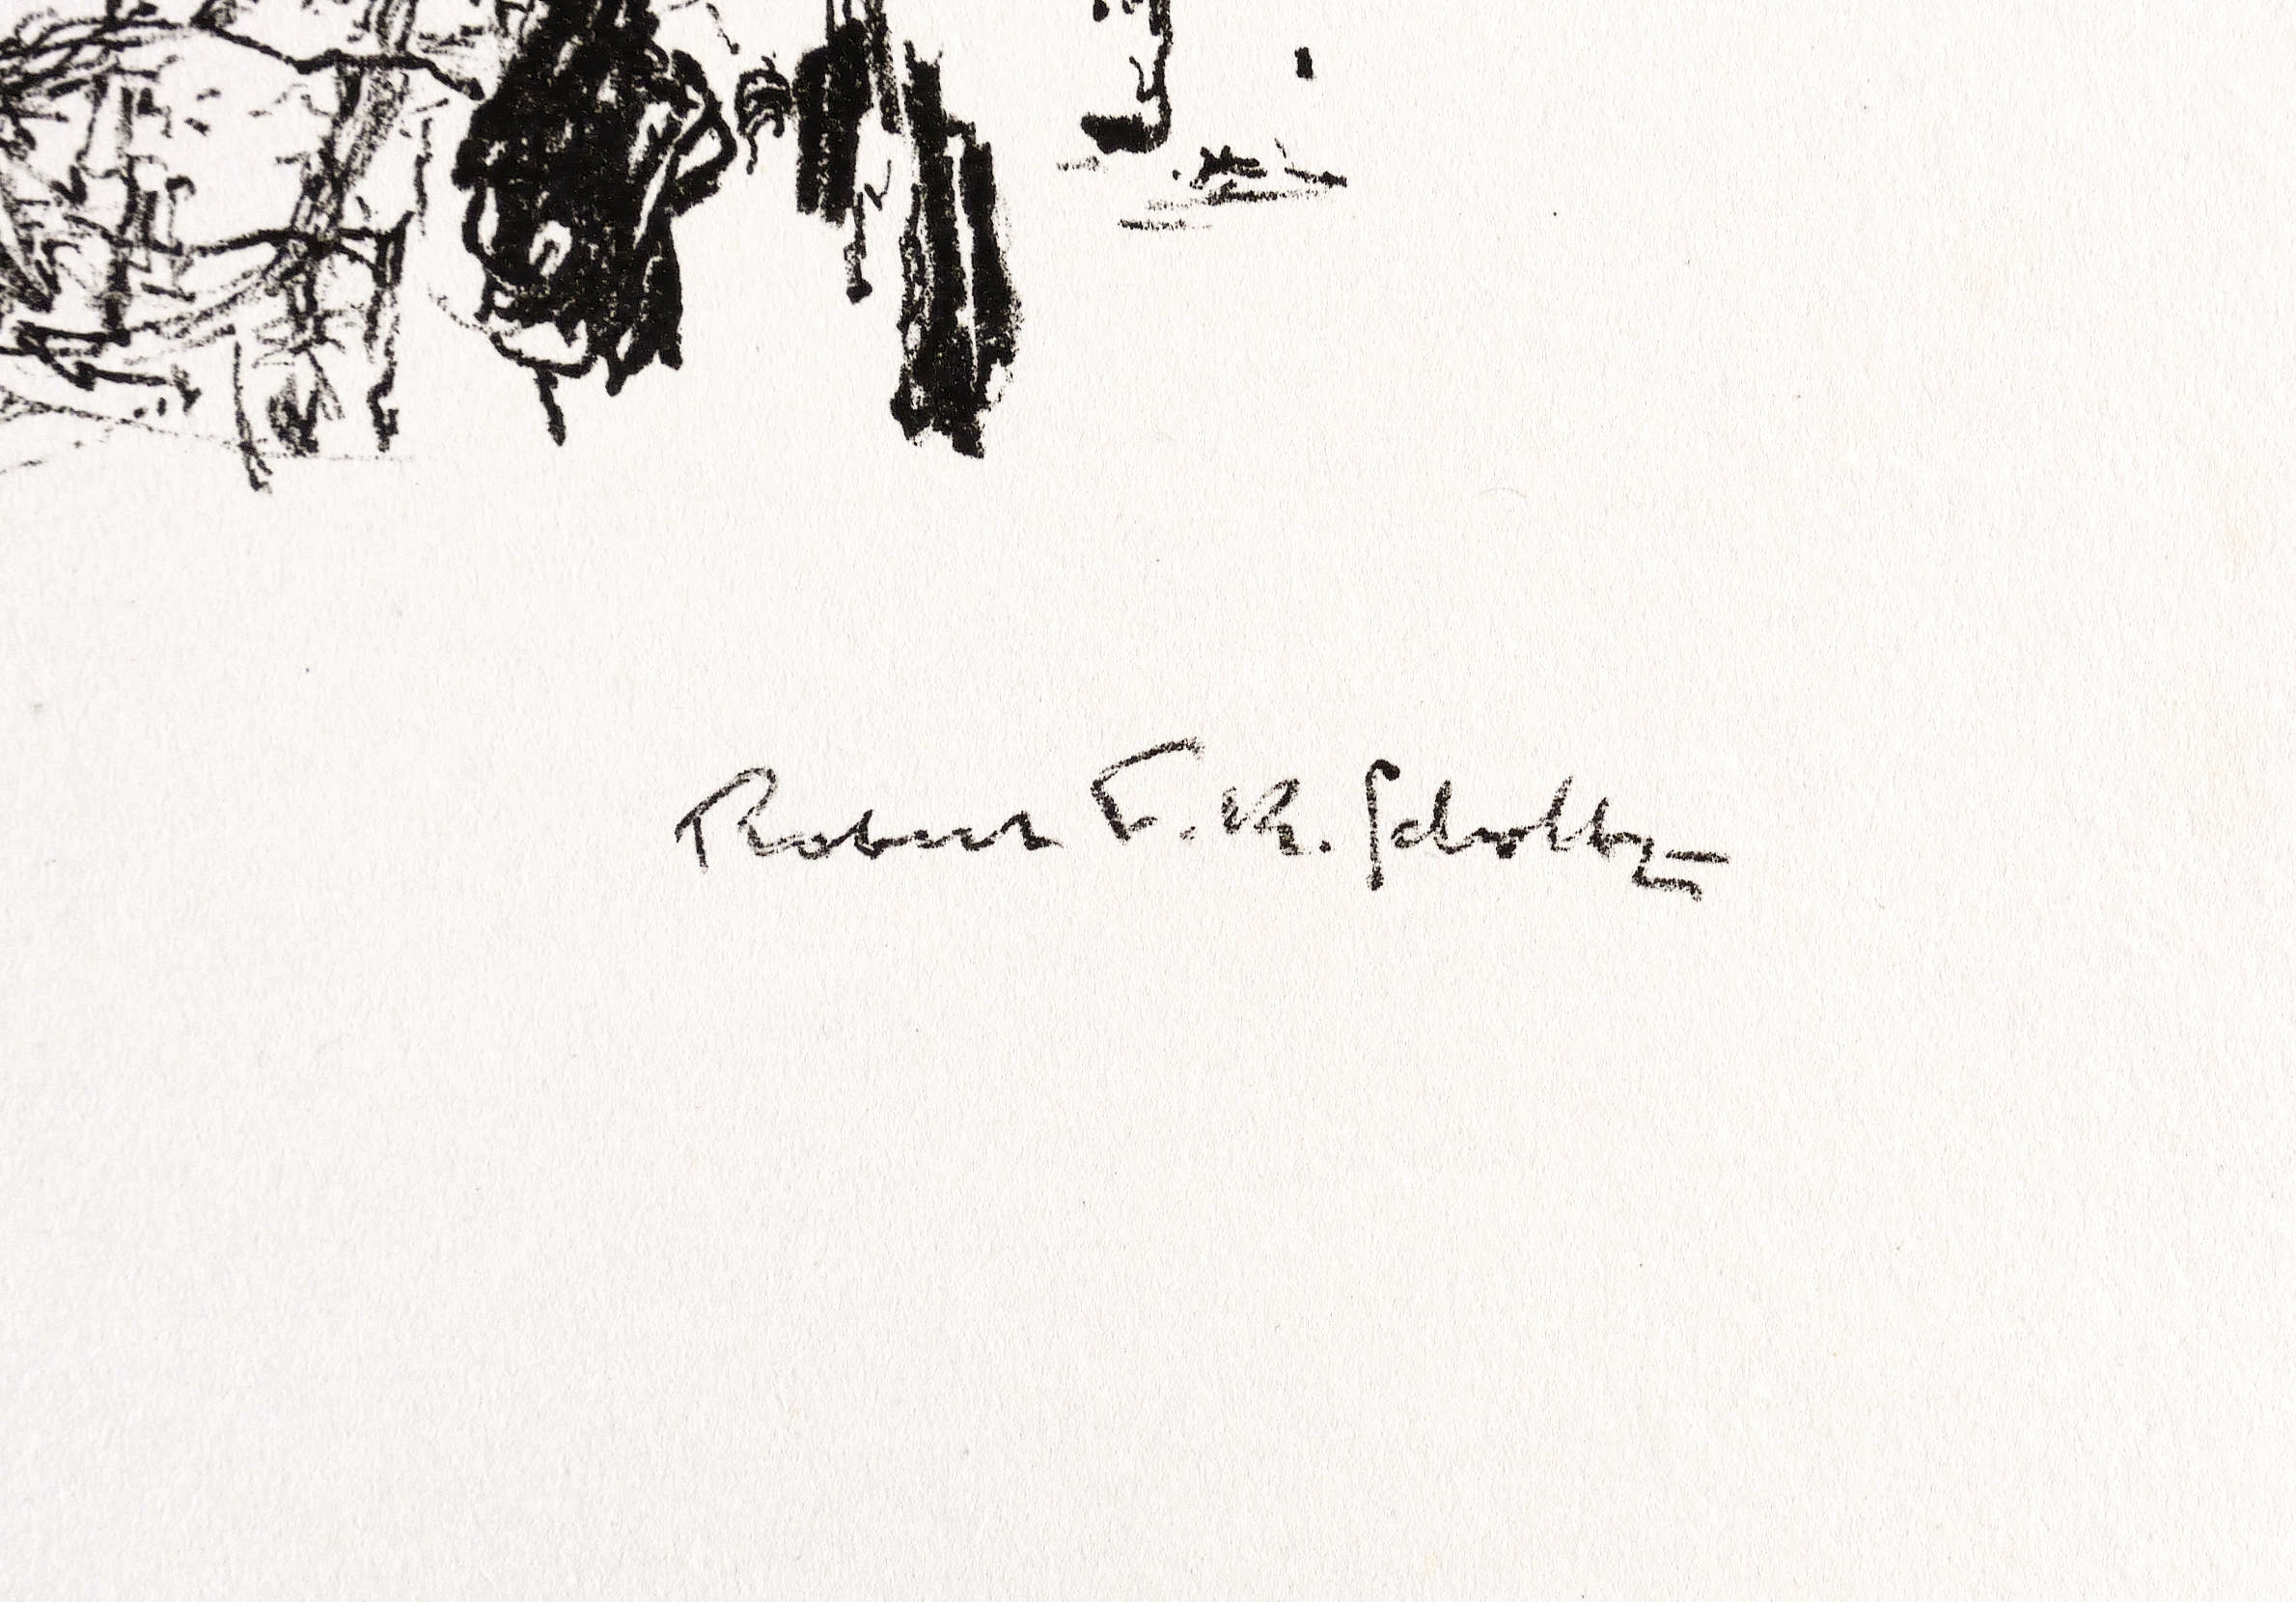 Robert F.K. Scholtz